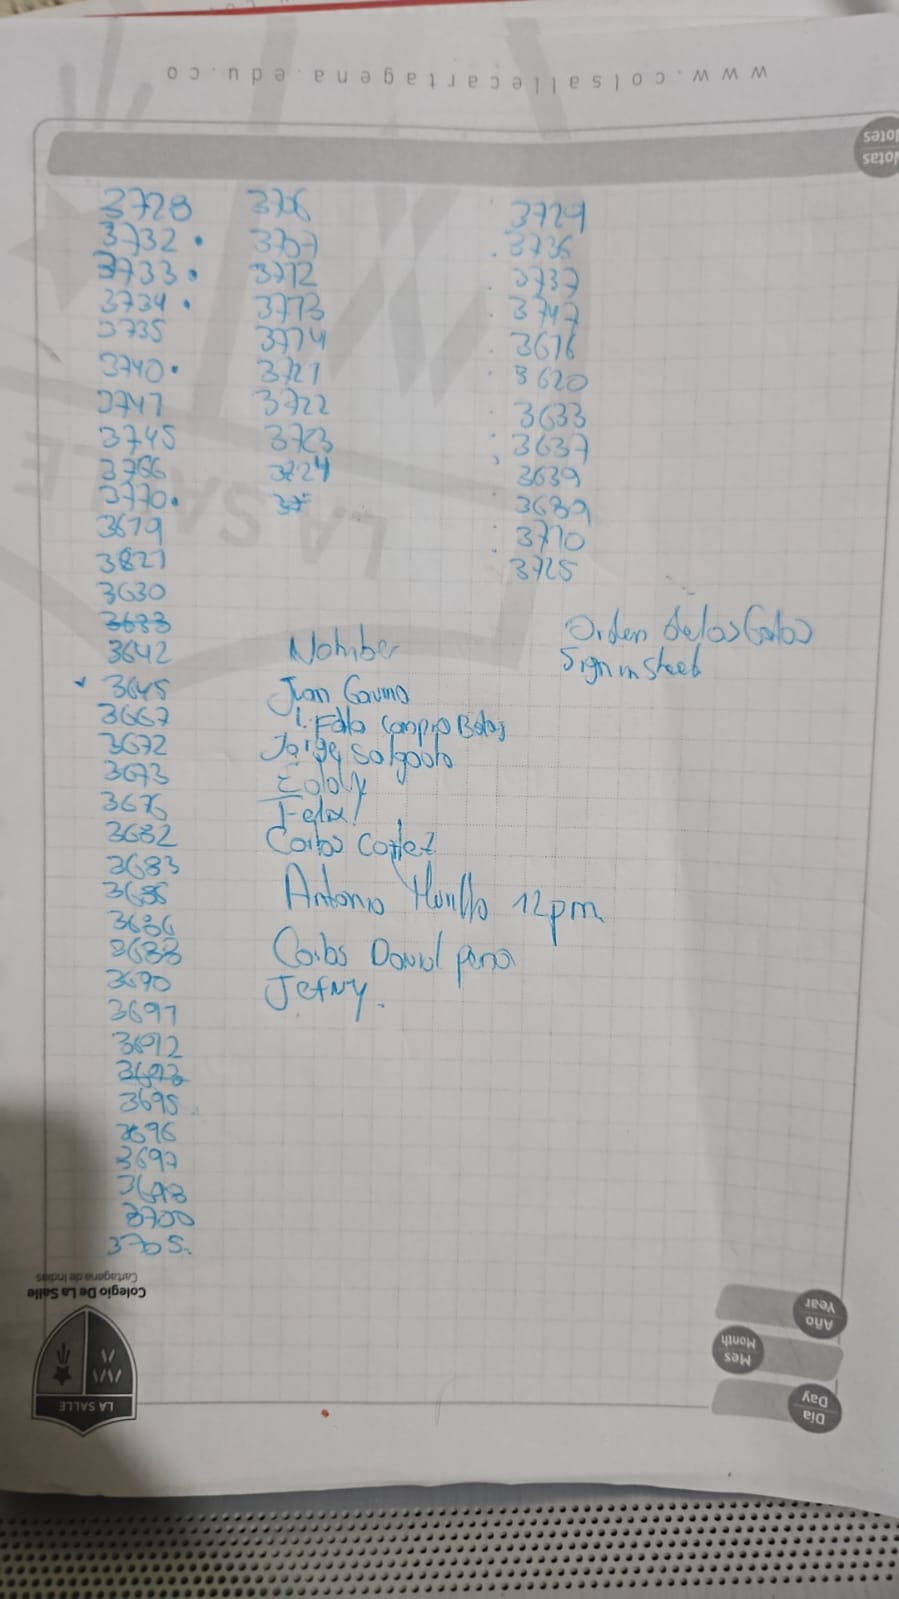 www.colsallecartagena.edu.co
Notas
Notes
3728
3732 .
3733 .
3734 .
3735
3740 .
3741
3745
3766
3770 .
3619
3821
3630
3633
3642
3645
3667
3672
3673
3676
3682
3683
3685
3686
3688
3690
3691
3692
3693
3695
3696
3697
3698
3700
3705.
3706
3707
3712
3713
3714
3721
3722
3723
3724
3729
3736
3737
3747
3616
3620
3633
3637
3639
3689
3710
3725
Orden de las
Sign in sheet
Nomber
Juan
1. Falta compro Botas
Jorge Salgado
Eddy
Felix
Carlos Cortez
Antonio 12pm.
Carlos David pena
Jefry.
Colegio De La Salle
Cartagena de Indias
LA SALLE
Año
Year
Mes
Month
Día
Day